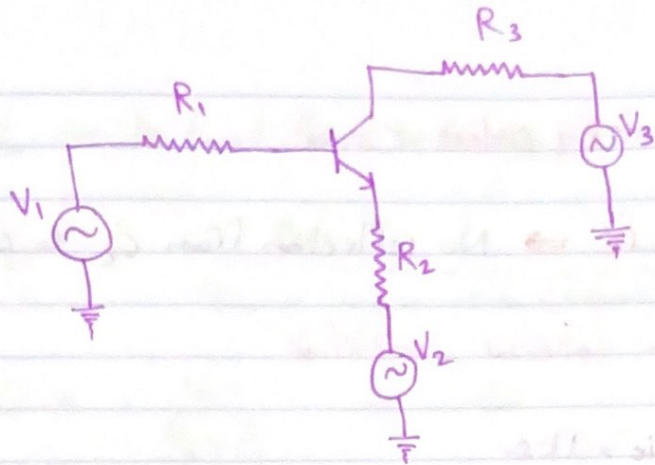 R3
R1
V3
V1
R2
V2